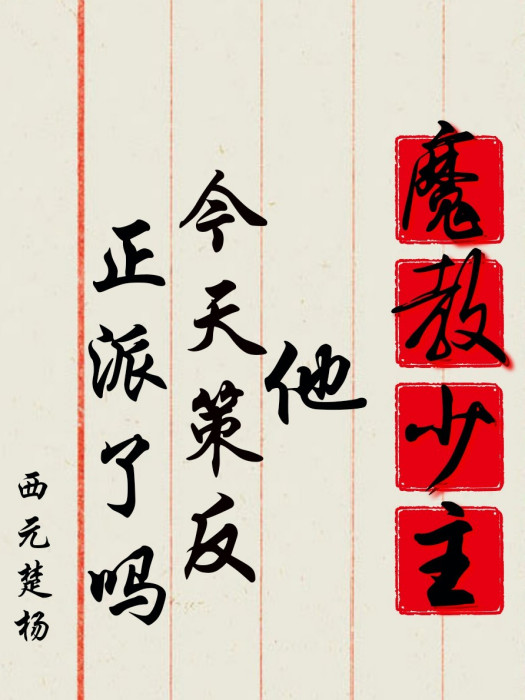 魔教少主
他
今天策反
正派了吗
西元楚杨